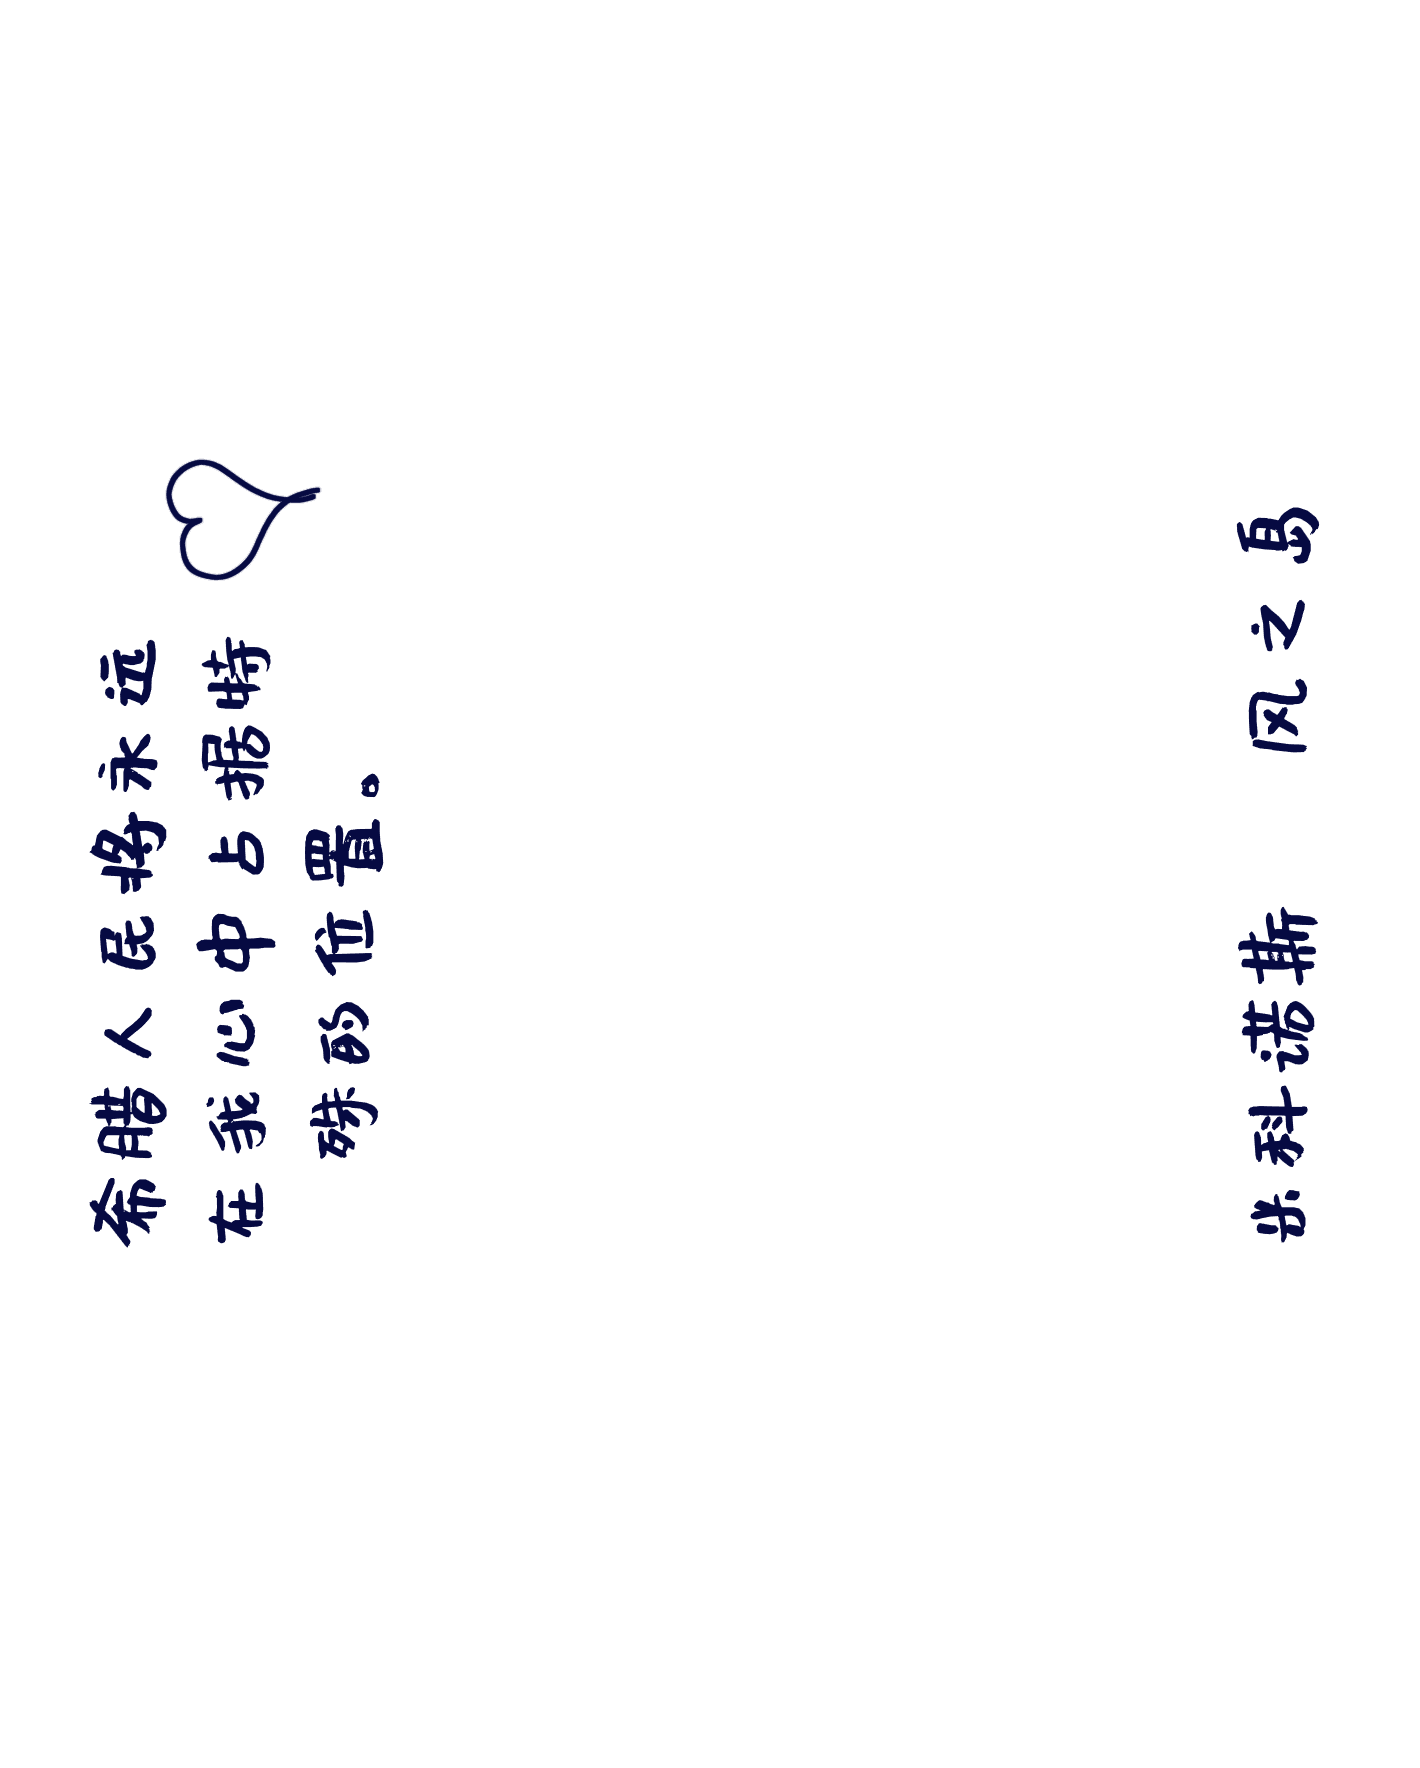 希腊人民将永远
在我心中占据特
殊的位置。
米科诺斯 风之岛